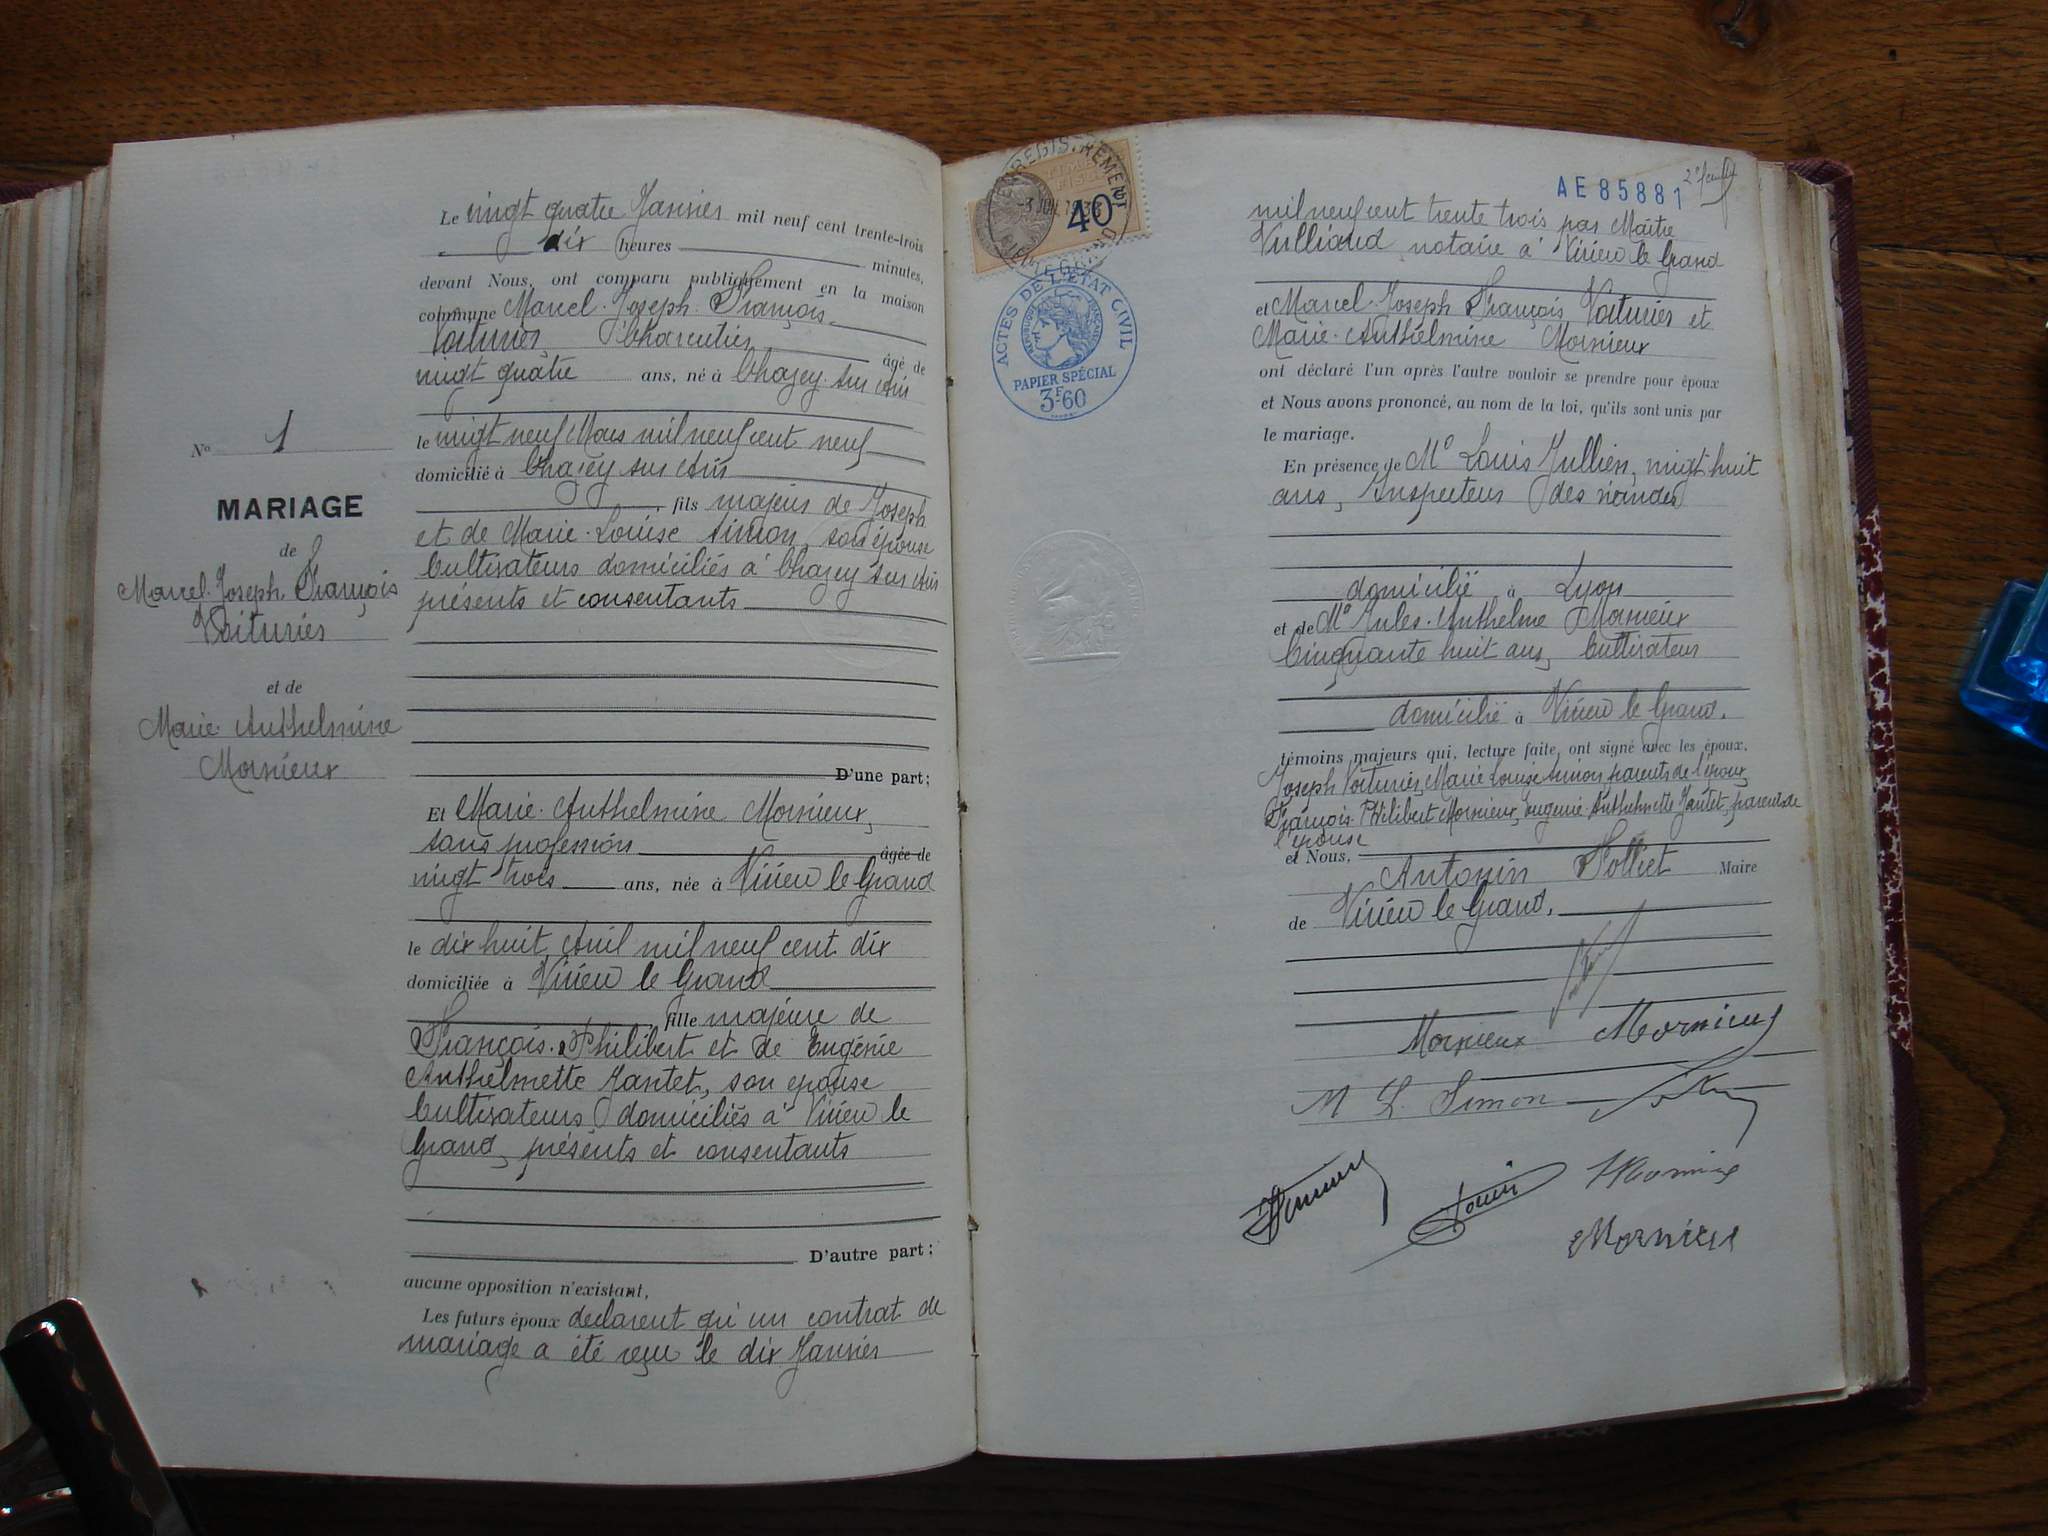 Le vingt quatre Janvier mil neuf cent trente-trois
dix heures minutes,
devant Nous, ont comparu publiquement en la maison
commune Marcel-Joseph-François
Voiturier, Charcutier âgé de
vingt quatre ans, né à Chazey-sur-Ain
le vingt neuf Mars mil neuf cent neuf
domicilié à Chazey sur Ain
, fils majeur de Joseph
et de Marie-Louise Simon, son épouse
Cultivateurs domiciliés à Chazey sur Ain
présents et consentants
D'une part;
N° 1
MARIAGE
de
Marcel-Joseph François
Voiturier
et de
Marie-Anthelmine
Mornieux
Et Marie-Anthelmine Mornieux,
sans profession âgée de
vingt trois ans, née à Virieu le Grand
le dix huit Avril mil neuf cent dix
domiciliée à Virieu le Grand
fille majeure de
François-Philibert et de Eugénie
Anthelmette Jantet, son epouse
Cultivateurs domiciliés à Virieu le
Grand, présents et consentants
D'autre part;
aucune opposition n'existant,
Les futurs époux declarent qu'un contrat de
mariage a été reçu le dix Janvier
40
ACTES DE L'ETAT CIVIL
PAPIER SPÉCIAL
3F60
AE 85881
mil neuf cent trente trois par Maître
Vulliaud notaire à Virieu le Grand
et Marcel-Joseph François Voiturier et
Marie-Anthelmine Mornieux
ont déclaré l'un après l'autre vouloir se prendre pour époux
et Nous avons prononcé, au nom de la loi, qu'ils sont unis par
le mariage.
En présence de Mr Louis Jullien, vingt huit
ans, Inspecteur des viandes
domicilié à Lyon
et de Mr Jules-Anthelme Mornieux
Cinquante huit ans, Cultivateur
domicilié à Virieu le Grand.
témoins majeurs qui, lecture faite, ont signé avec les époux,
Joseph Voiturier, Marie Louise Simon parents de l'époux,
François-Philibert Mornieux, Eugenie-Anthelmette Jantet, parents de
l'épouse
et Nous,
Antonin Folliet Maire
de Virieu le Grand.
Mornieux Mornieux
M L. Simon
Mornieux